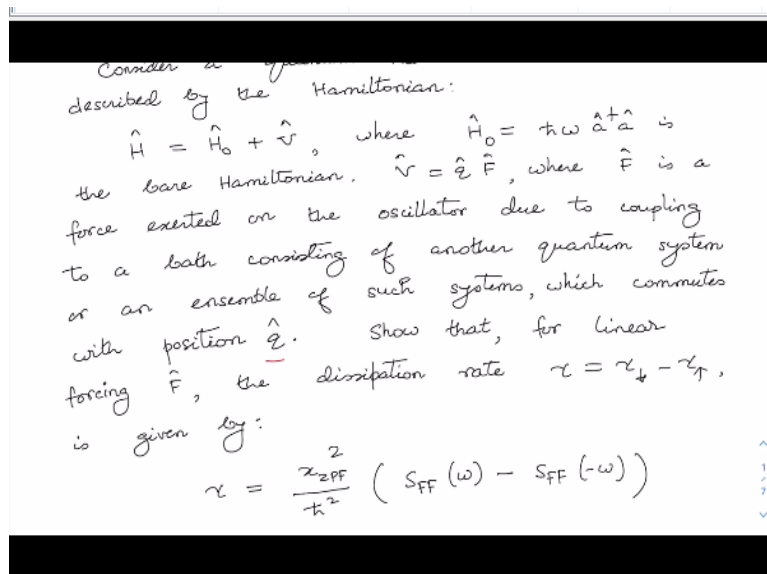 Consider a
described by the Hamiltonian:
Ĥ = Ĥ₀ + v̂, where Ĥ₀ = ħω â†â is
the bare Hamiltonian. v̂ = q̂ F̂, where F̂ is a
force exerted on the oscillator due to coupling
to a bath consisting of another quantum system
or an ensemble of such systems, which commutes
with position q̂. Show that, for linear
forcing F̂, the dissipation rate γ = γ↓ − γ↑,
is given by:
γ = x²ZPF / ħ² ( SFF (ω) − SFF (-ω) )
1
/
7